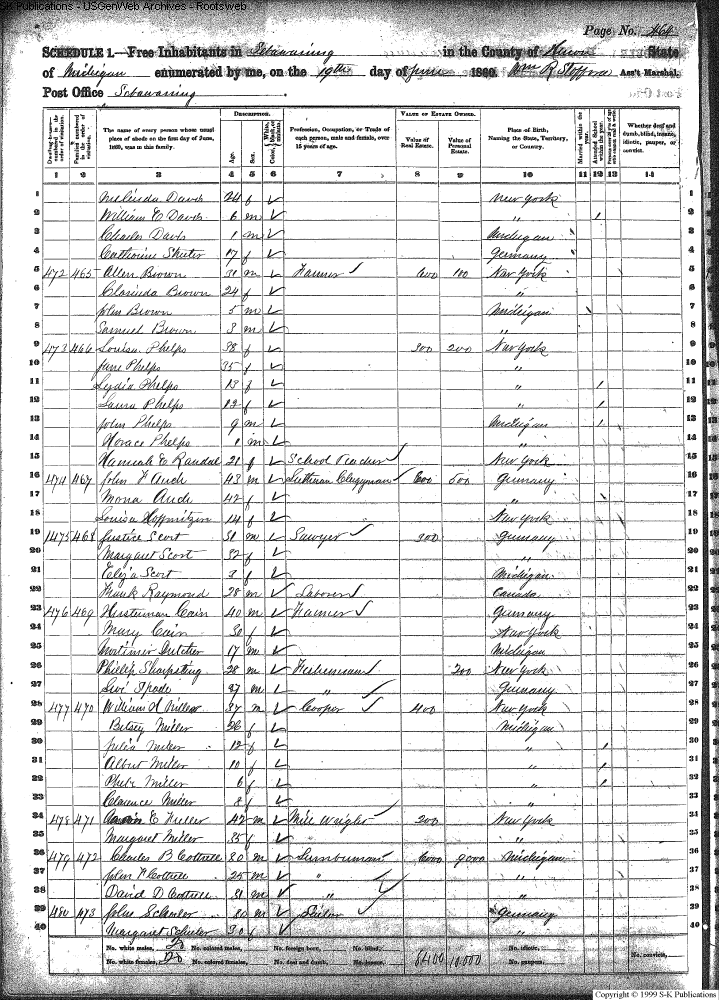 S-K Publications - USGenWeb Archives - Rootsweb
Page No. 464
SCHEDULE 1.—Free Inhabitants in Sebawaing in the County of Huron State
of Michigan enumerated by me, on the 19th day of June 1860. Wm R. Ass't Marshal.
Post Office Sebawaing
Dwelling-houses numbered in the order of visitation.
Families numbered in the order of visitation.
The name of every person whose usual place of abode on the first day of June, 1860, was in this family.
DESCRIPTION.
Age.
Sex.
Color, White, black, or mulatto.
Profession, Occupation, or Trade of each person, male and female, over 15 years of age.
VALUE OF ESTATE OWNED.
Value of Real Estate.
Value of Personal Estate.
Place of Birth, Naming the State, Territory, or Country.
Married within the year.
Attended School within the year.
Whether deaf and dumb, blind, insane, idiotic, pauper, or convict.
1 2 3 4 5 6 7 8 9 10 11 12 13 14
1 Melinda Davis 24 f ✓ New York 1
2 William E Davis 6 m ✓ " 1 2
3 Charles Davis 1 m ✓ Michigan 3
4 Catharine 17 f ✓ Germany 4
5 472 465 Allen Brown 31 m ✓ Farmer 600 100 New York 5
6 Clarinda Brown 24 f ✓ " 6
7 John Brown 5 m ✓ Michigan 7
8 Samuel Brown 3 m ✓ " 8
9 473 466 Louisa Phelps 38 f ✓ 300 200 New York 9
10 Jane Phelps 35 f ✓ " 10
11 Lydia Phelps 13 f ✓ " 1 11
12 Laura Phelps 12 f ✓ " 1 12
13 John Phelps 9 m ✓ Michigan 1 13
14 Horace Phelps 1 m ✓ " 14
15 Hannah E Randal 21 f ✓ School Teacher New York 15
16 474 467 John F Auch 43 m ✓ Lutheran Clergyman 600 500 Germany 16
17 Mona Auch 42 f ✓ " 17
18 Louisa 14 f ✓ New York 18
19 475 468 Justice Scort 31 m ✓ Sawyer 300 Germany 19
20 Margaret Scort 32 f ✓ " 20
21 Eliza Scort 3 f ✓ Michigan 21
22 Frank Raymond 28 m ✓ Laborer Canada 22
23 476 469 Cain 40 m ✓ Farmer Germany 23
24 Mary Cain 30 f ✓ New York 24
25 17 m ✓ Michigan 25
26 Phillip Sharpsting 28 m ✓ Fisherman 200 New York 26
27 Levi Spade 27 m ✓ " Germany 27
28 477 470 William H Miller 37 m ✓ Cooper 400 New York 28
29 Betsey Miller 26 f ✓ Michigan 29
30 Julia Miller 12 f ✓ " 1 30
31 Albert Miller 10 f ✓ " 1 31
32 Phebe Miller 6 f ✓ " 1 32
33 Clarence Miller 8 f ✓ " 33
34 478 471 E Fuller 42 m ✓ Mill Wright 200 New York 34
35 Margaret Miller 35 f ✓ " 35
36 479 472 Charles B Cottrell 30 m ✓ Lumberman 6000 9000 Michigan 36
37 John F Cottrell 25 m ✓ " " 37
38 David D Cottrell 31 m ✓ " " 38
39 480 473 30 m ✓ Germany 39
40 Margaret 30 f ✓ " 40
No. white males, 20 No. colored males, No. foreign born, No. blind, No. idiotic,
No. white females, 20 No. colored females, No. deaf and dumb, No. insane, 8400 10,000 No. paupers, No. convicts,
Copyright © 1999 S-K Publications